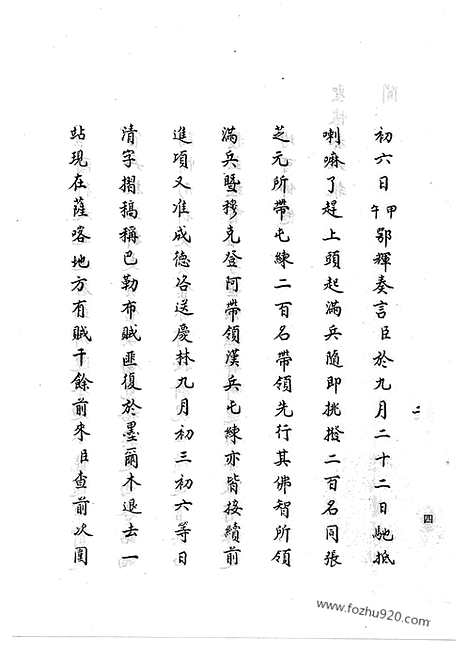 初六日甲午鄂輝奏言臣於九月二十二日馳抵
喇嘛了趕上頭起滿兵隨即挑撥二百名同張
芝元所帶屯練二百名帶領先行其佛智所領
滿兵暨穆克登阿帶領漢兵屯練亦皆接續前
進項又准成德咨送慶林九月初三初六等日
清字摺稿稱巴勒布賊匪復於墨爾木退去一
站現在薩喀地方有賊千餘前來臣查前次圍
二
四
www.fozhu920.com